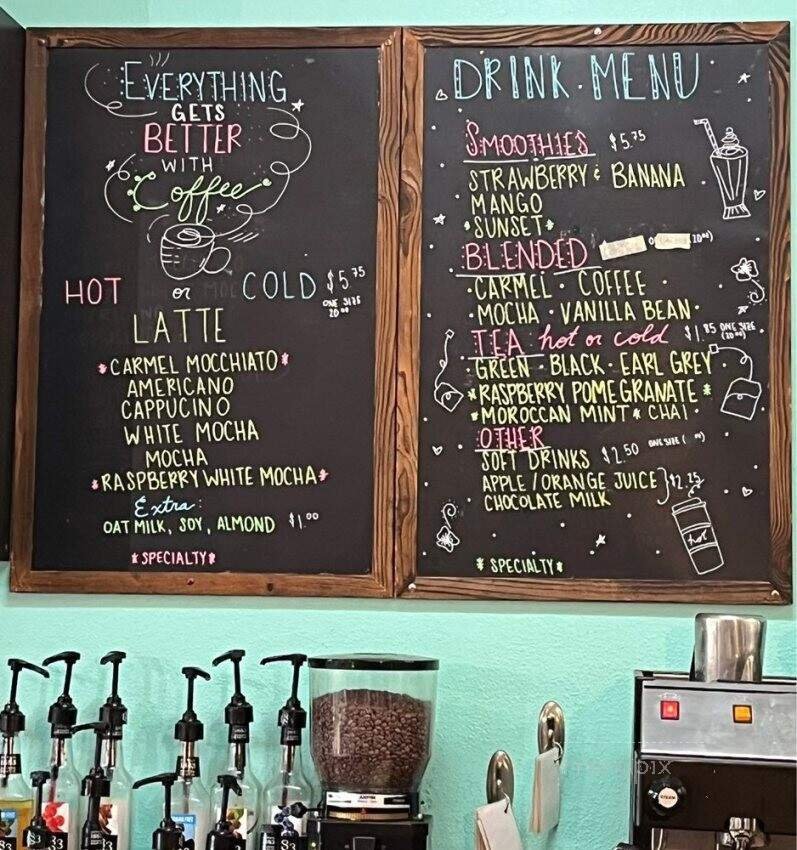 EVERYTHING
GETS
BETTER
WITH
Coffee
HOT or COLD $5.75
ONE SIZE
20oz
LATTE
*CARMEL MOCCHIATO*
AMERICANO
CAPPUCINO
WHITE MOCHA
MOCHA
*RASPBERRY WHITE MOCHA*
Extra:
OAT MILK, SOY, ALMOND $1.00
*SPECIALTY*
DRINK MENU
SMOOTHIES $5.75
STRAWBERRY & BANANA
MANGO
*SUNSET*
BLENDED
CARMEL · COFFEE
MOCHA · VANILLA BEAN
TEA hot or cold ONE SIZE
GREEN · BLACK · EARL GREY
*RASPBERRY POMEGRANATE*
*MOROCCAN MINT * CHAI
OTHER
SOFT DRINKS $2.50 ONE SIZE
APPLE / ORANGE JUICE } $2.25
CHOCOLATE MILK
hot
*SPECIALTY*